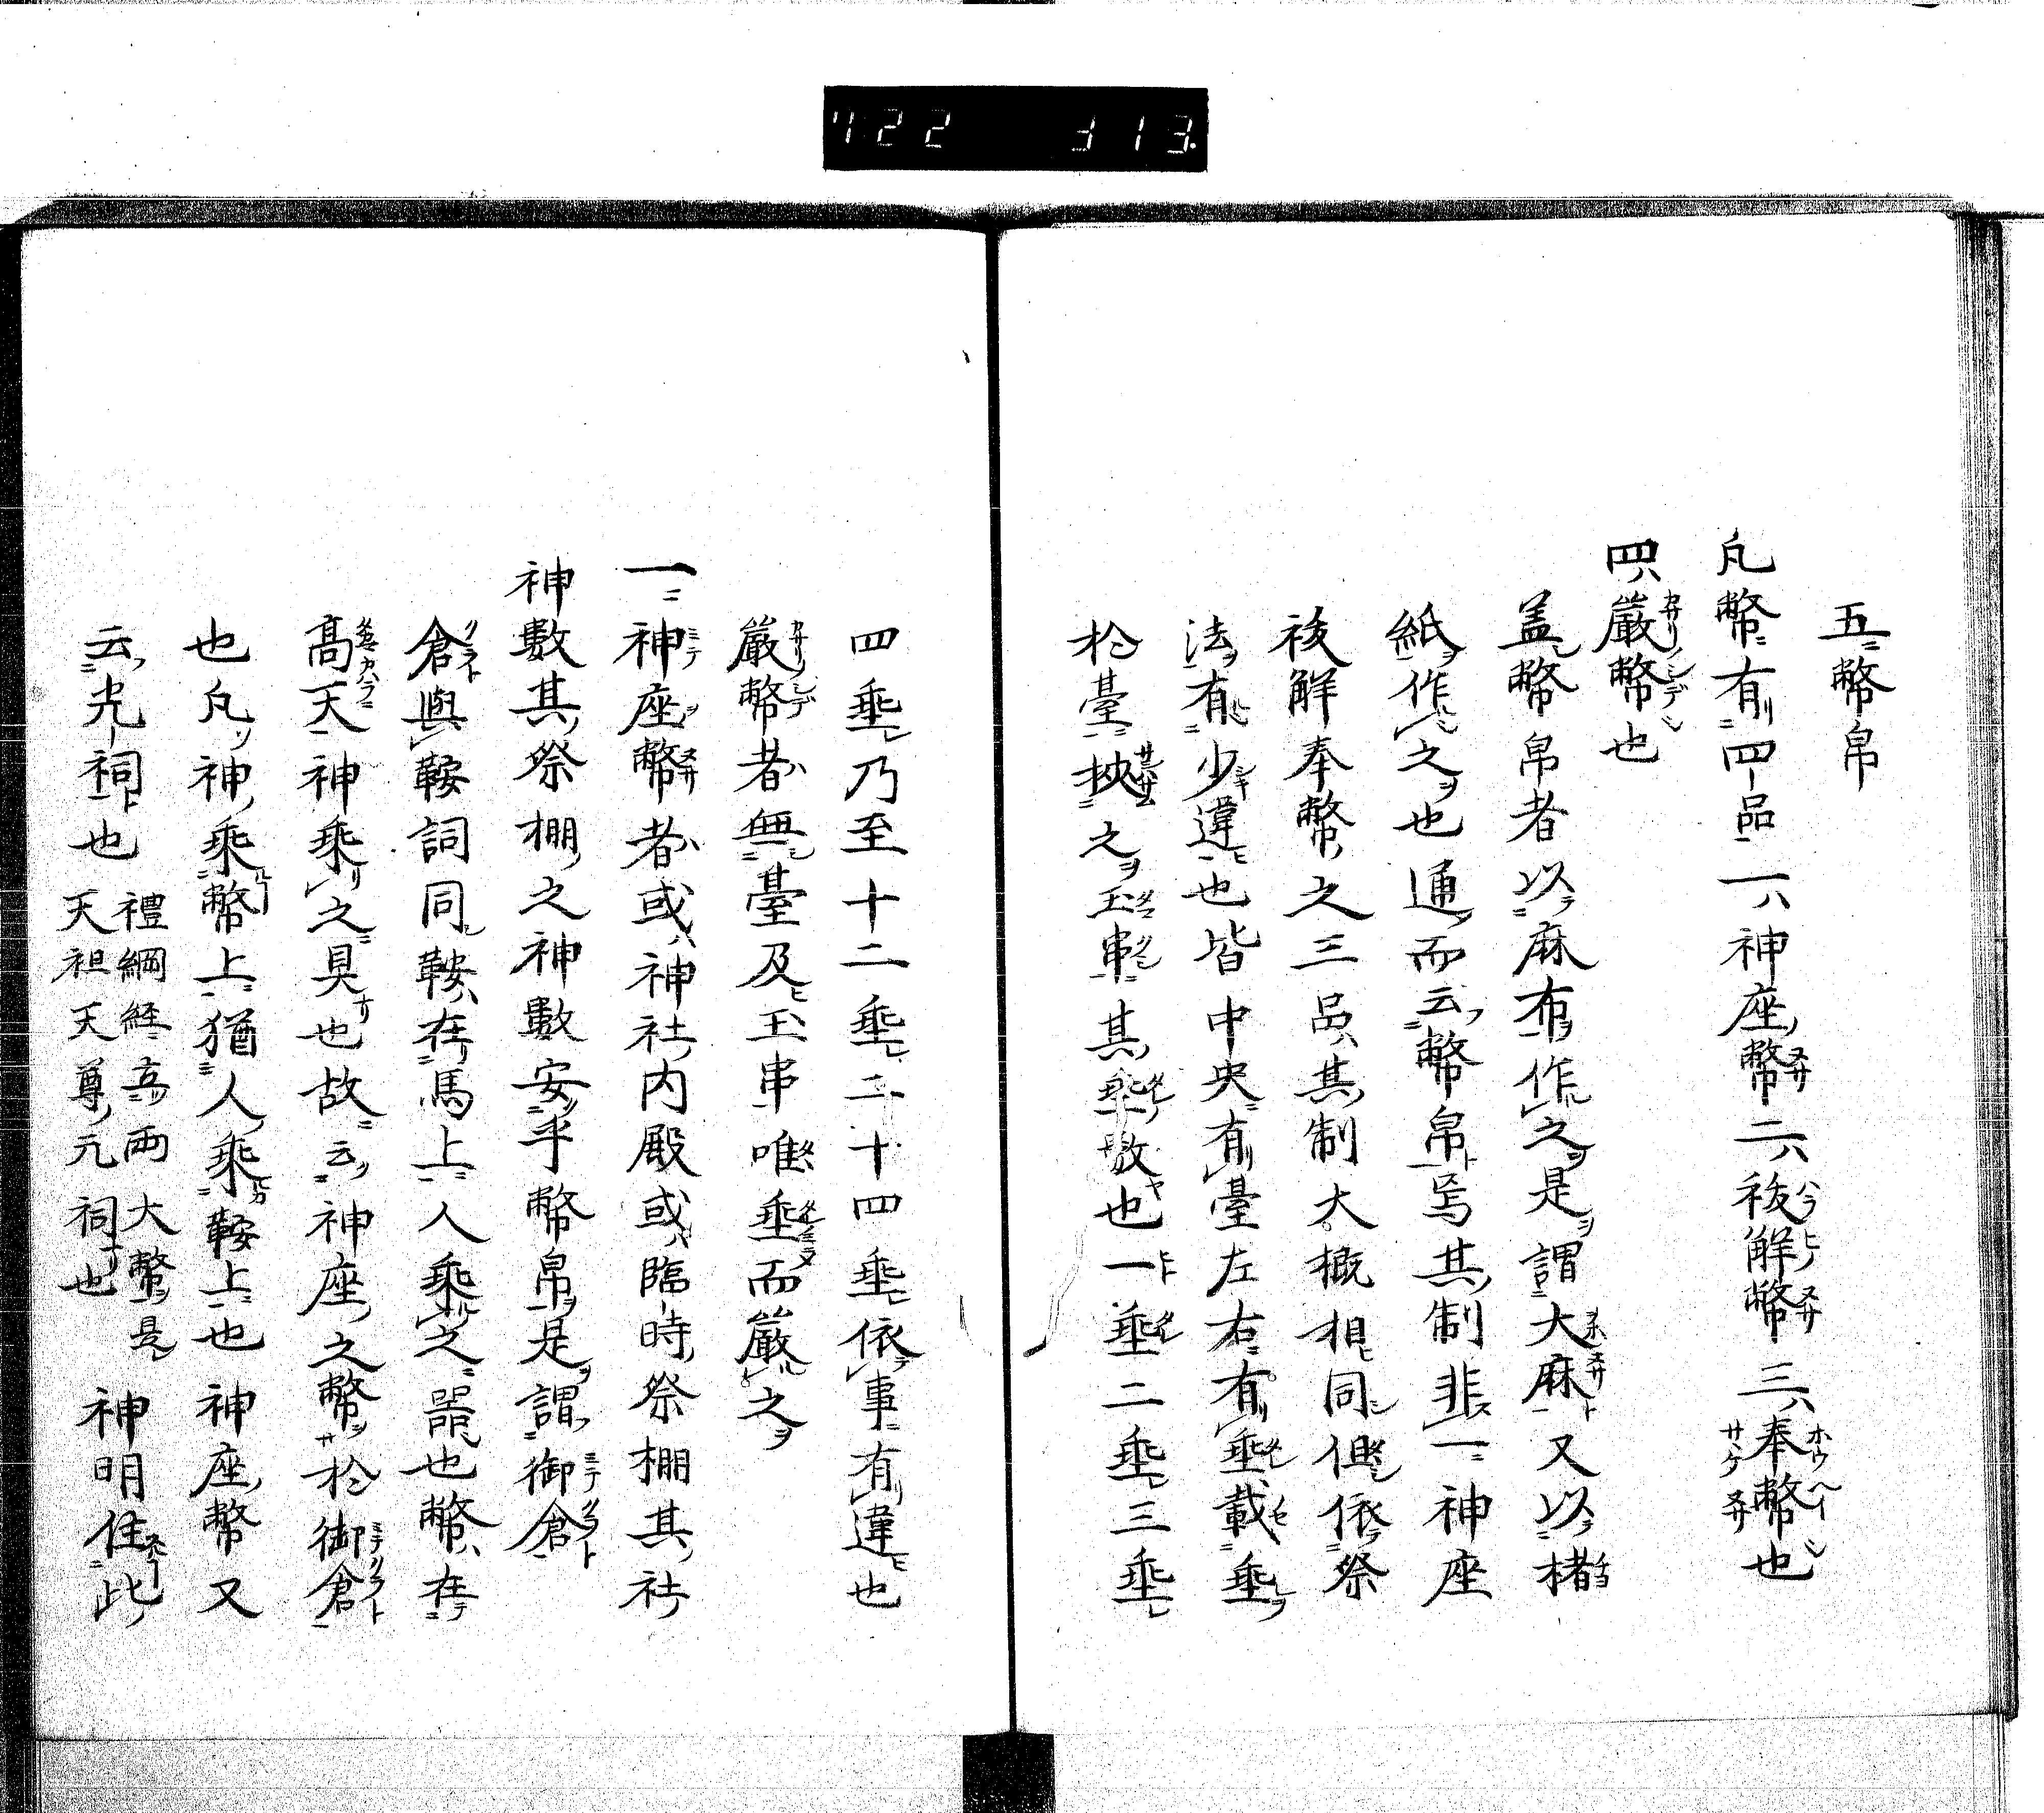 722 313
五幣帛
凡幣有四品一ハ神座幣二ハ祓解幣三ハ奉幣也
四ハ嚴幣也
盖幣帛者以麻布作之是謂大麻又以楮
紙作之也通而云幣帛焉其制非一神座
祓解奉幣之三品其制大概相同但依祭
法有少違也皆中央有臺左右有垂載垂
於臺挾之玉串其垂数也一垂二垂三垂
四垂乃至十二垂二十四垂依事有違也
嚴幣者無臺及玉串唯垂而嚴之
一神座幣者或神社内殿或臨時祭棚其社
神數其祭棚之神數安乎幣帛是謂御倉
倉與鞍詞同鞍在馬上人乘之噐也幣在
高天神乘之具也故云神座之幣於御倉
也凡神乘幣上猶人乘鞍上也神座幣又
云光祠也 禮綱経高兩大幣是 天祖天尊元祠也 神明住此